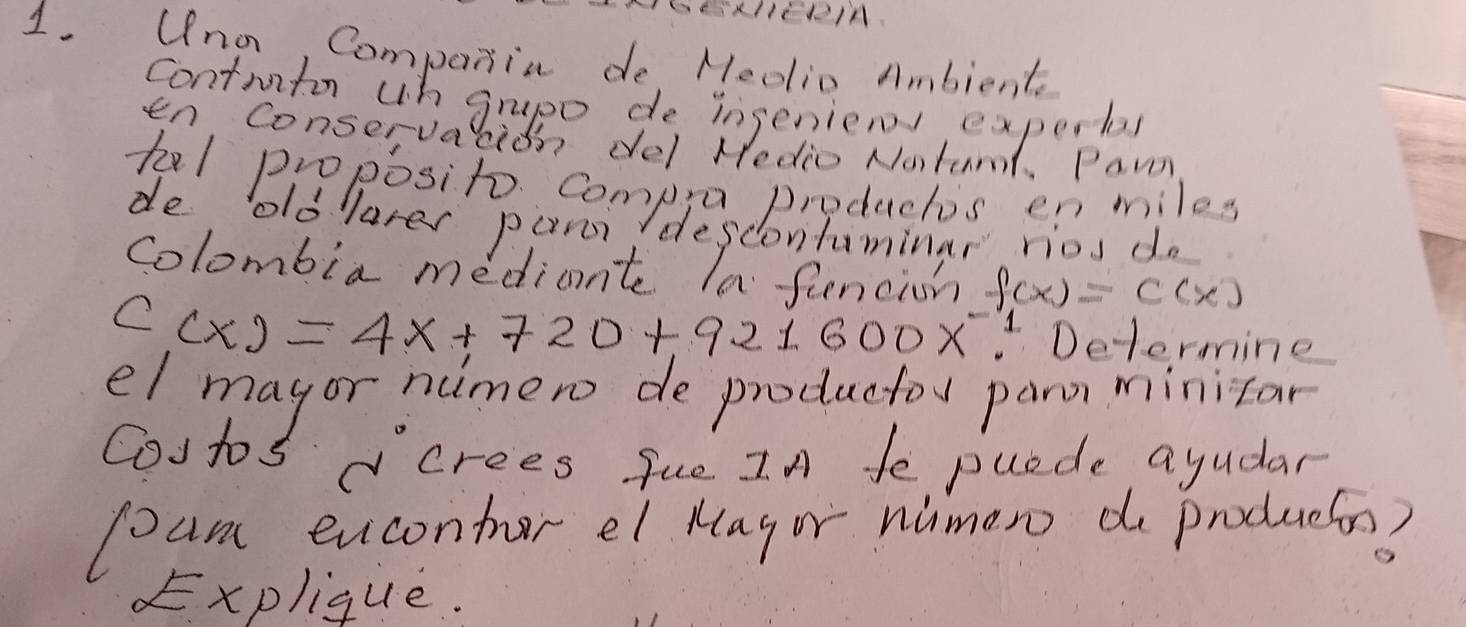 1. Una Compañia de Medio Ambiente
contrata un grupo de ingenieros expertos
en conservación del Medio Natural. Para
tal propósito compra productos en miles
de dólares para descontaminar rios de
Colombia mediante la función f(x) = C(x)
C(x) = 4x + 720 + 921600x⁻¹. Determine
el mayor número de productos para minizar
Costos ¿crees que IA te puede ayudar
para encontrar el Mayor número de productos?
Explique.